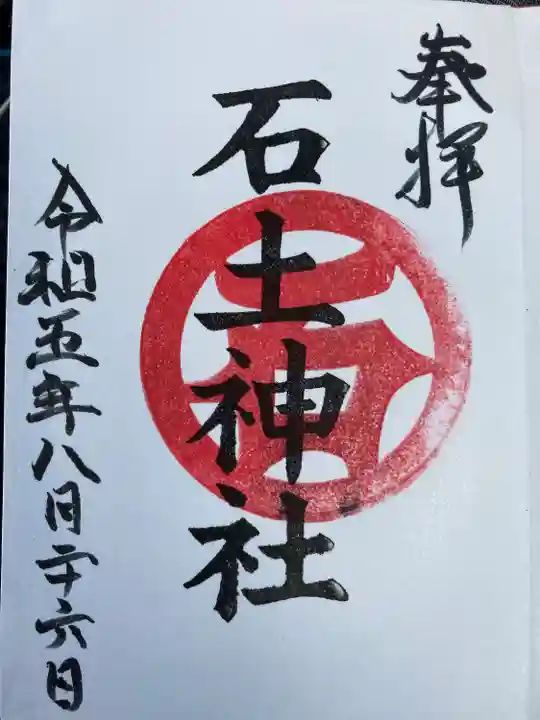 奉拝
石土神社
令和五年八月二十六日